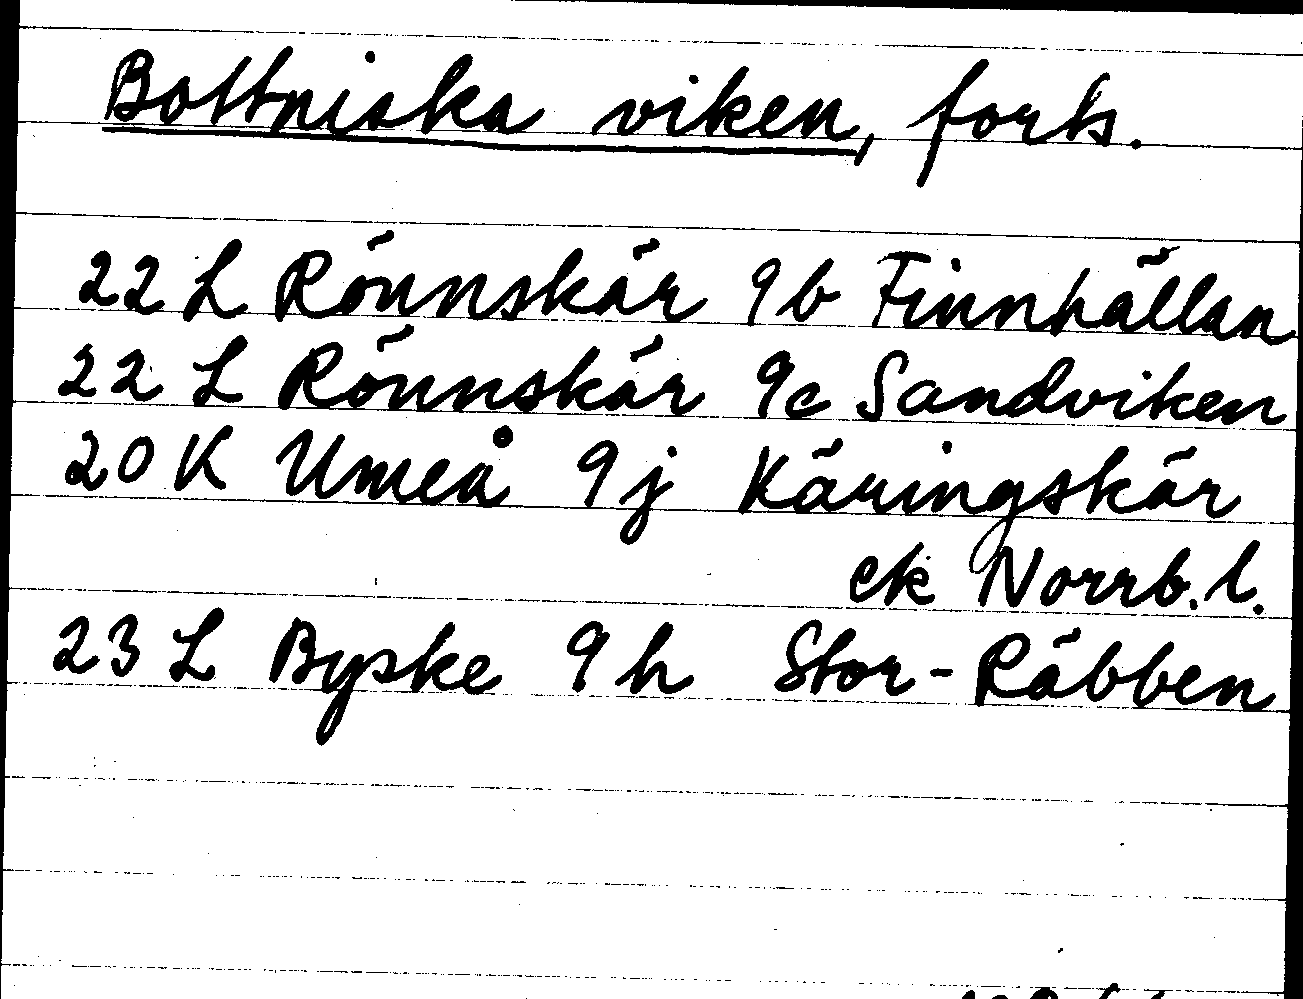 Bottniska viken, forts.
22 L Rönnskär 9b Finnhällan
22 L Rönnskär 9c Sandviken
20 K Umeå 9j Käringskär
ek Norrb. l.
23 L Byske 9h Stor-Räbben